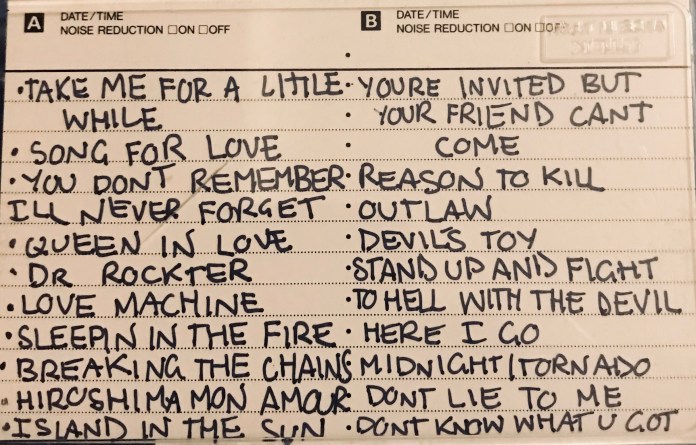 A DATE/TIME
NOISE REDUCTION □ON □OFF
• TAKE ME FOR A LITTLE
WHILE
• SONG FOR LOVE
• YOU DONT REMEMBER
ILL NEVER FORGET
• QUEEN IN LOVE
• DR ROCKTER
• LOVE MACHINE
• SLEEPIN IN THE FIRE
• BREAKING THE CHAINS
• HIROSHIMA MON AMOUR
• ISLAND IN THE SUN
B DATE/TIME
NOISE REDUCTION □ON □OFF
• YOURE INVITED BUT
• YOUR FRIEND CANT
• COME
• REASON TO KILL
• OUTLAW
• DEVIL'S TOY
• STAND UP AND FIGHT
• TO HELL WITH THE DEVIL
• HERE I GO
MIDNIGHT/TORNADO
• DONT LIE TO ME
• DONT KNOW WHAT U GOT